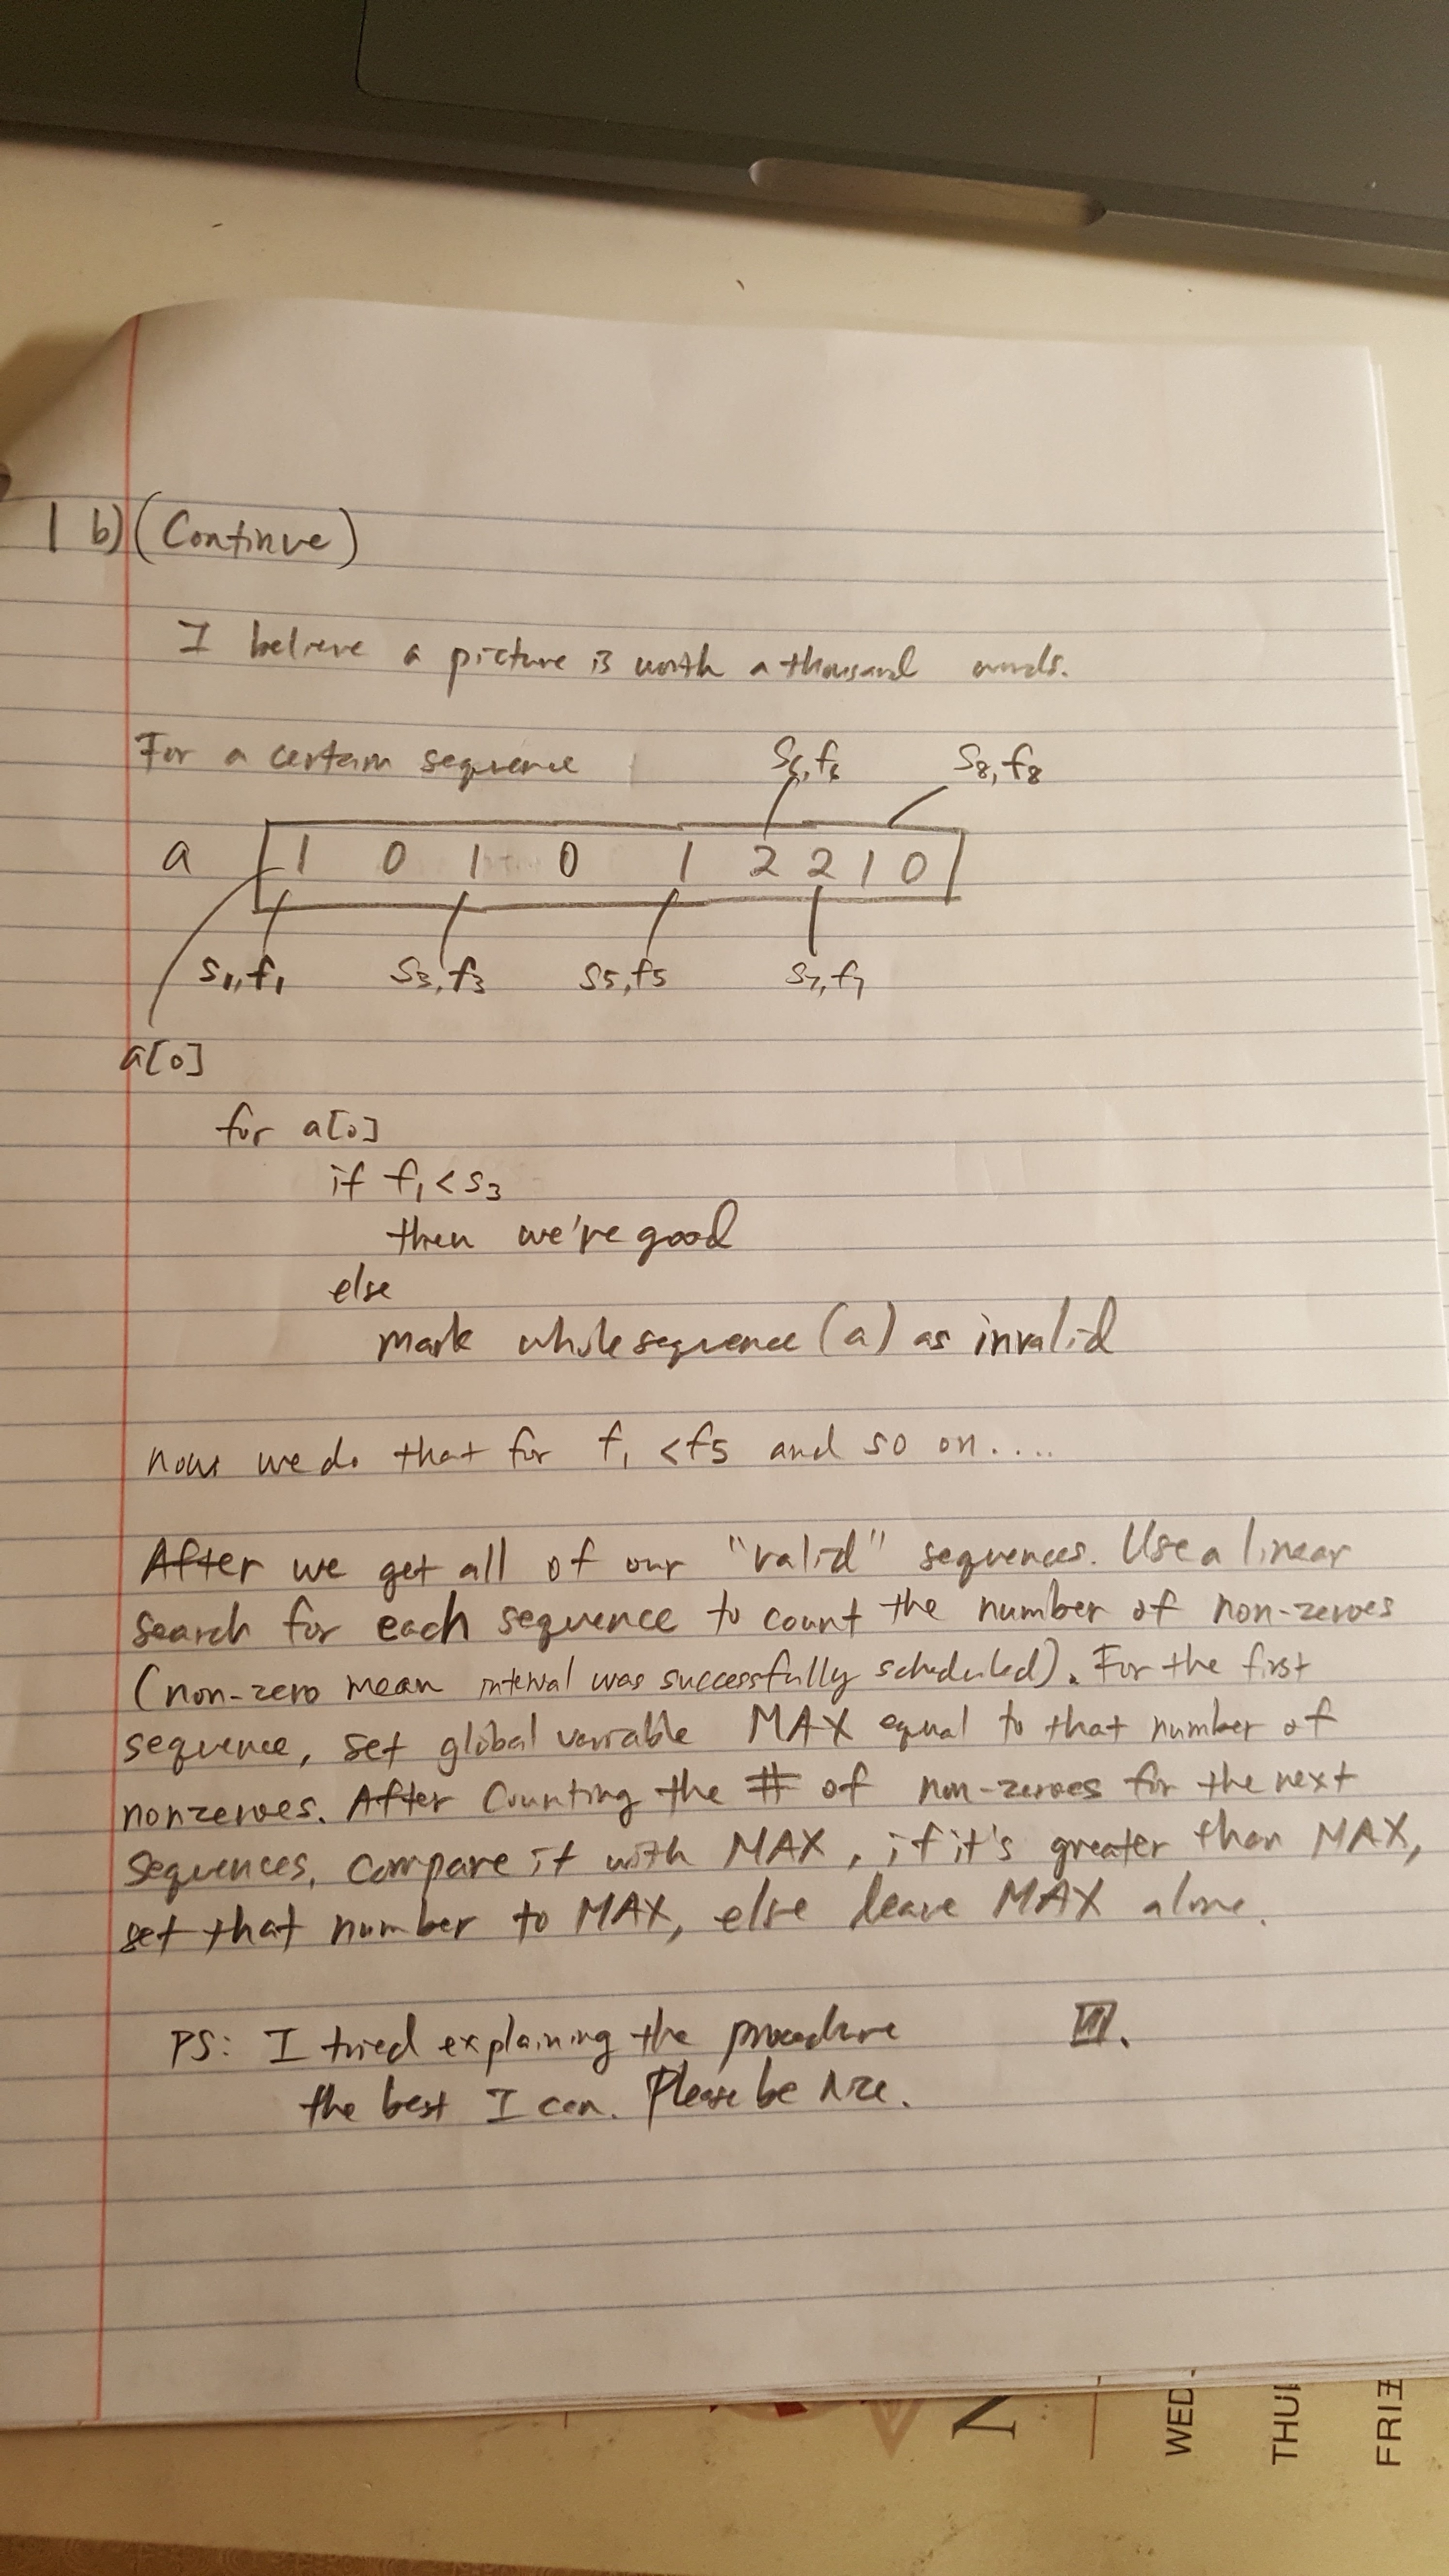 1 b) (Continue)
I believe a picture is worth a thousand words.
For a certain sequence
S6,f6 S8,f8
a 1 0 1 0 1 2 2 1 0
S1,f1 S3,f3 S5,f5 S7,f7
a[0]
for a[0]
if f1 < s3
then we're good
else
mark whole sequence (a) as invalid
now we do that for f1 < f5 and so on....
After we get all of our "valid" sequences. Use a linear
search for each sequence to count the number of non-zeroes
(non-zero mean interval was successfully scheduled). For the first
sequence, set global variable MAX equal to that number of
nonzeroes. After counting the # of non-zeroes for the next
sequences, compare it with MAX, if it's greater than MAX,
set that number to MAX, else leave MAX alone.
PS: I tried explaining the procedure
the best I can. Please be nice.
N
WED
THU
FRI